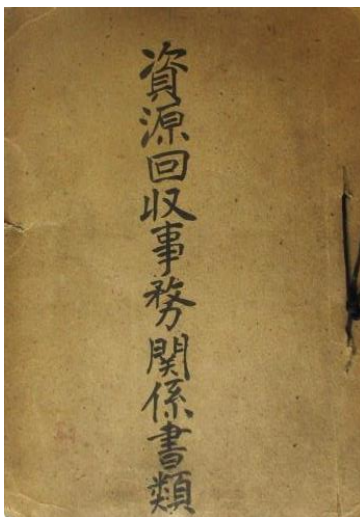 資源回収事務関係書類